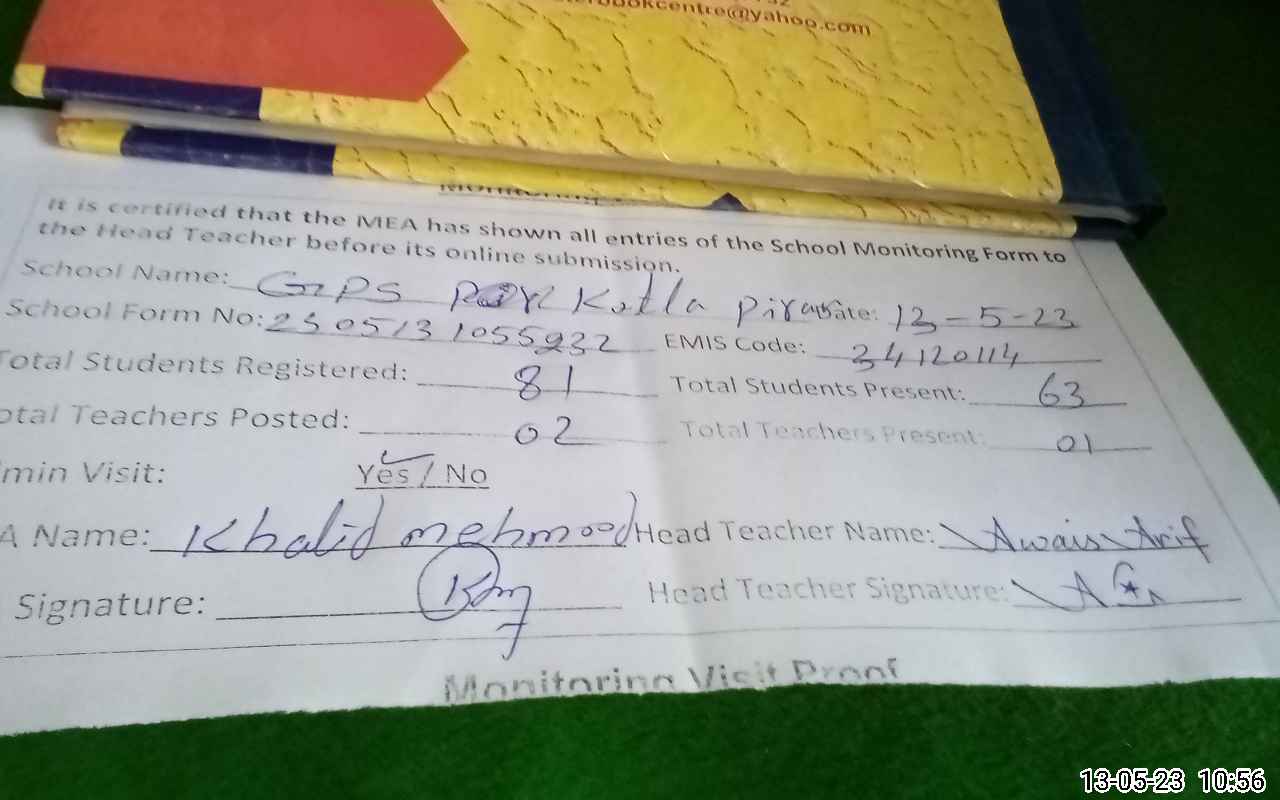 bookcentre@yahoo.com
It is certified that the MEA has shown all entries of the School Monitoring Form to
the Head Teacher before its online submission.
School Name: GPS Kotla Date: 13-5-23
School Form No: EMIS Code: 34120114
Total Students Registered: 81 Total Students Present: 63
otal Teachers Posted: 02 Total Teachers Present: 01
min Visit: Yes / No
A Name: Khalid mehmood Head Teacher Name: Awais Arif
Signature: Head Teacher Signature:
Monitoring Visit Proof
13-05-23 10:56